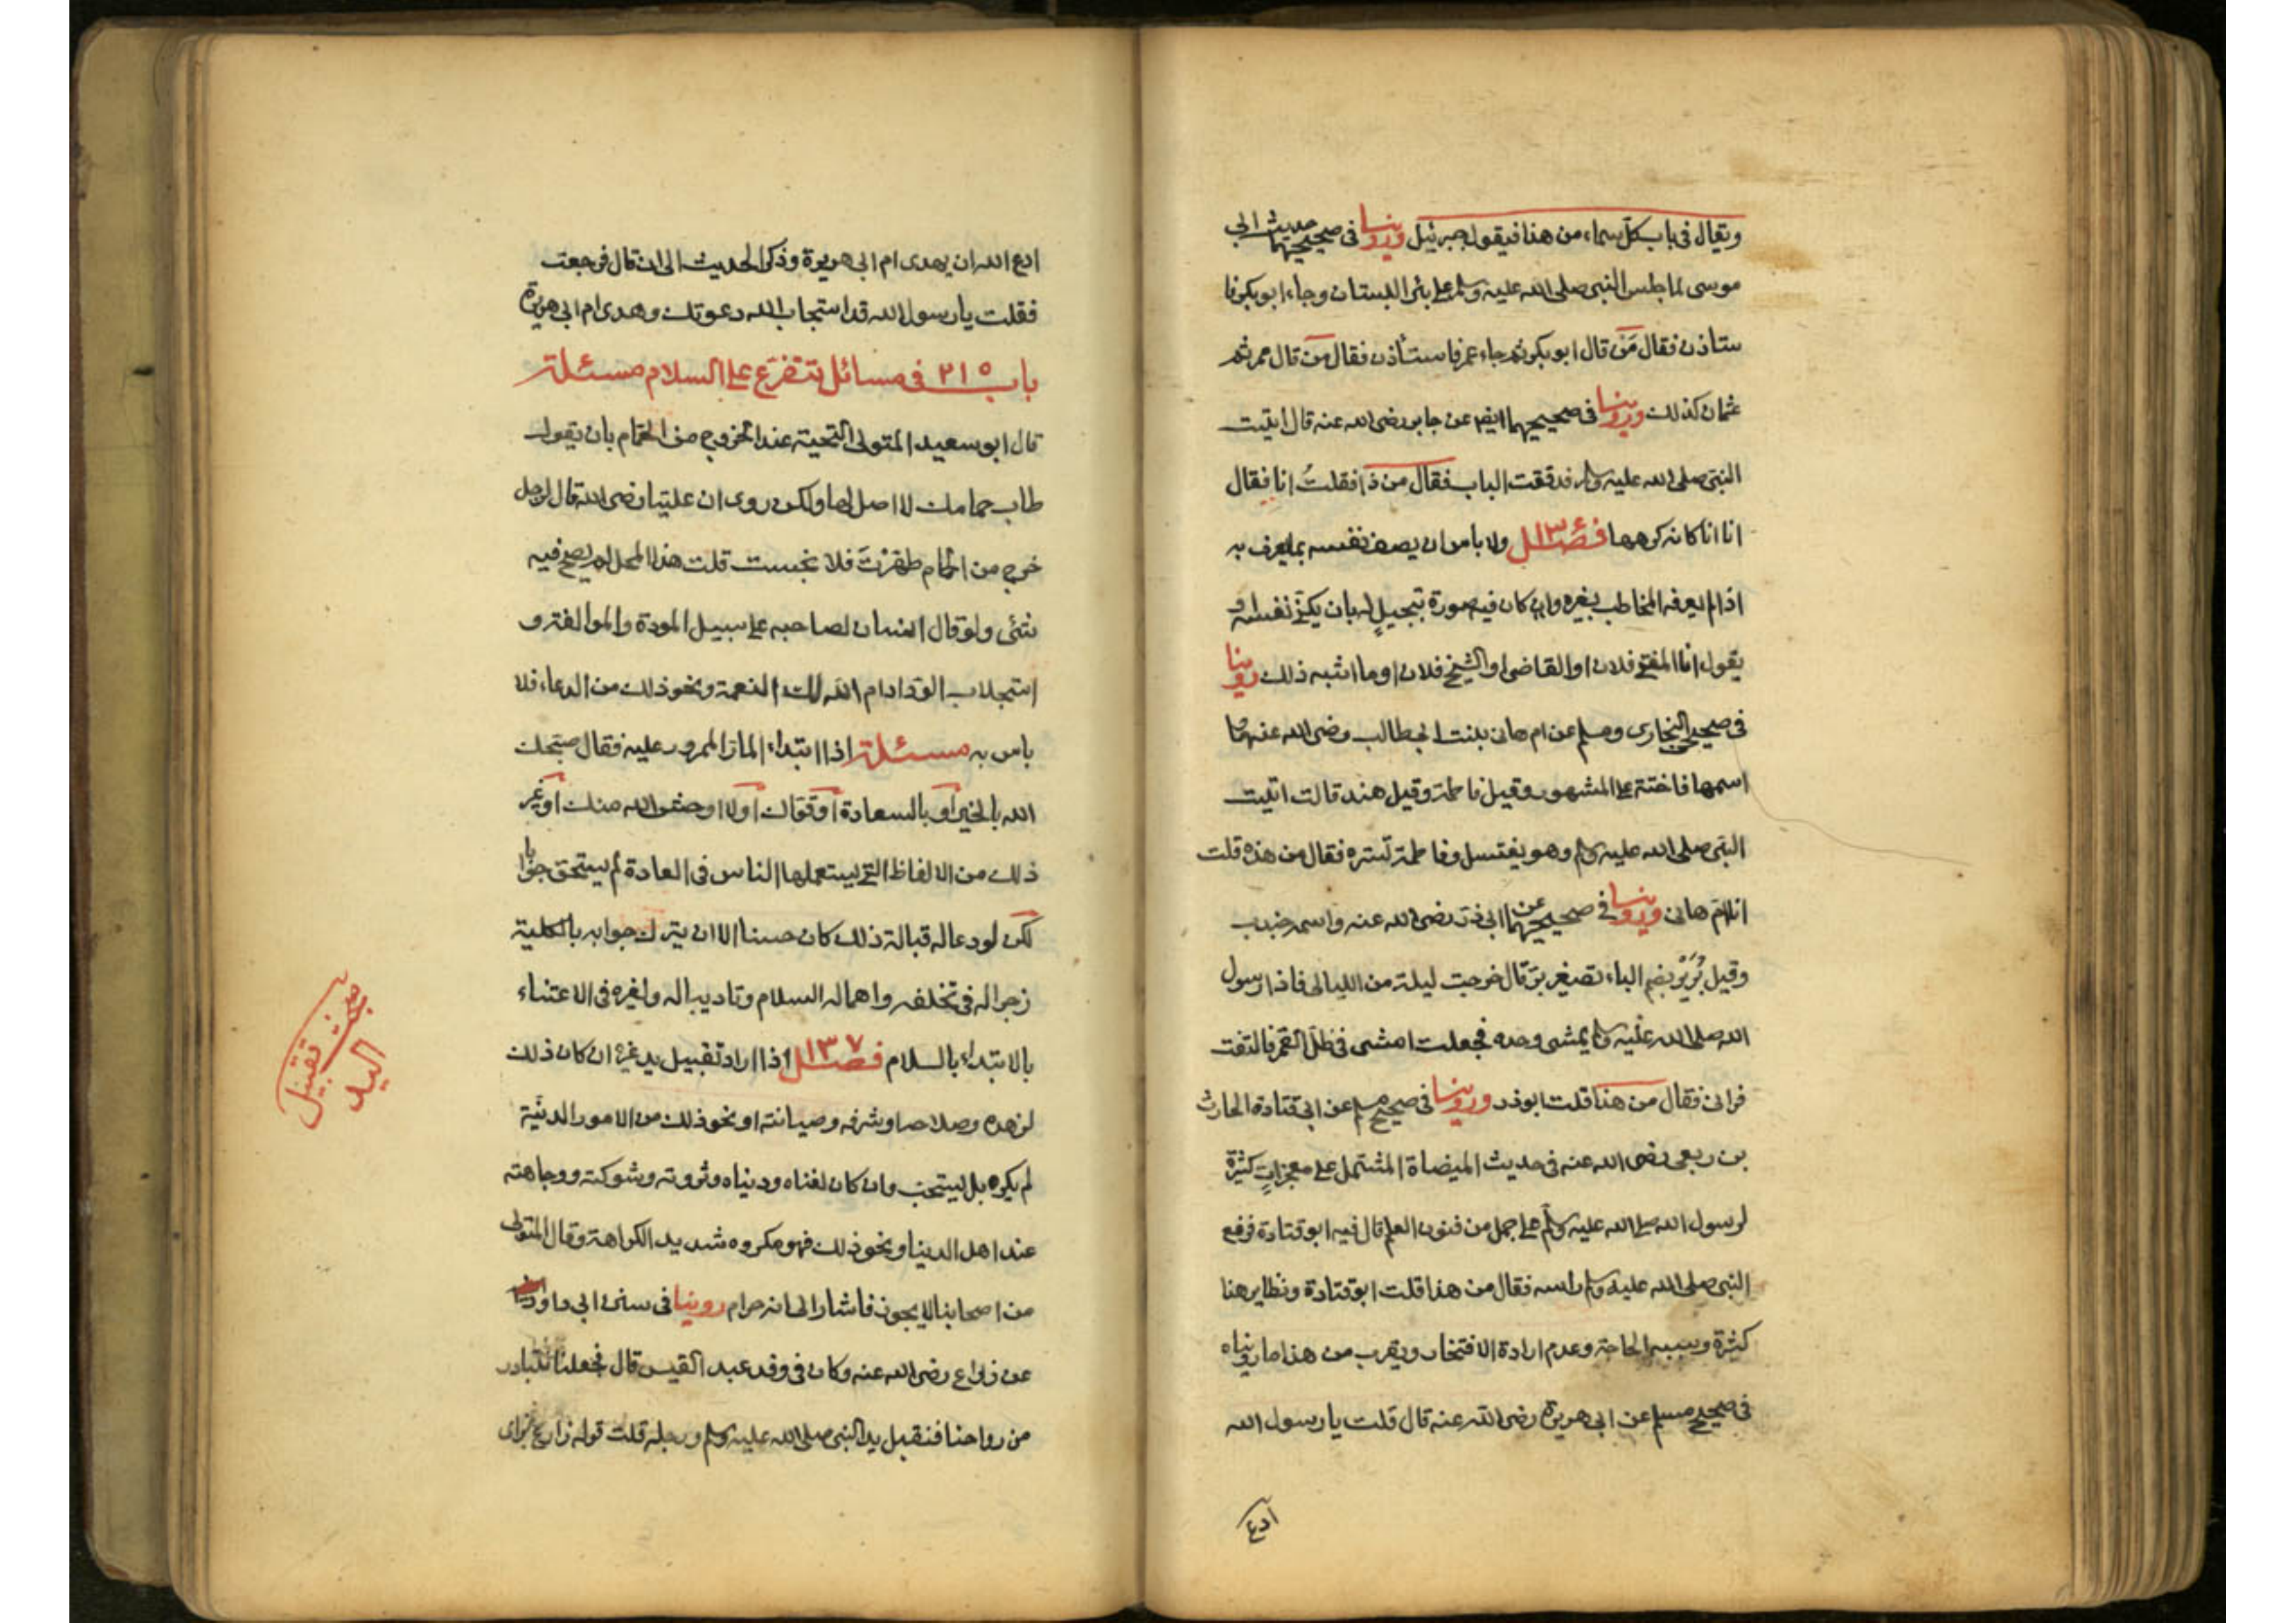 ويقال في باب كل سماء من هذا فيقول جبرئيل وروينا في صحيحيهما حديث ابي
موسى لما جلس النبي صلى الله عليه وسلم على بئر البستان وجاء ابو بكر فا
ستاذن فقال مَن قال ابو بكر ثم جاء عمر فاستأذن فقال من قال عمر ثم
عثمان كذلك وروينا في صحيحيهما ايضا عن جابر رضى الله عنه قال اتيت
النبي صلى الله عليه وسلم فدققت الباب فقال من ذا فقلتُ انا فقال
انا انا كانه كرهها فصل ١٣٦ ولا باس ان يصف نفسه بما يعرف به
اذا لم يعرفه المخاطب بغيره وان كان فيه صورة تبجيلٍ له بان يكنّى نفسه او
يقول انا المفتى فلان او القاضى او الشيخ فلان او ما اشبه ذلك روينا
في صحيحي البخارى ومسلم عن ام هانى بنت ابى طالب رضى الله عنهما
اسمها فاختة على المشهور وقيل فاطمة وقيل هند قالت اتيت
النبي صلى الله عليه وسلم وهو يغتسل وفاطمة تستره فقال من هذه قلت
انا ام هانى وروينا في صحيحيهما عن ابى ذر رضى الله عنه واسمه جندب
وقيل بُرَيْر بضم الباء تصغير بر قال خرجت ليلة من الليالى فاذا رسول
الله صلى الله عليه وسلم يمشى وحده فجعلت امشى في ظل القمر فالتفت
فرانى فقال من هذا قلت ابو ذر وروينا في صحيح مسلم عن ابى قتادة الحارث
بن ربعى رضى الله عنه في حديث الميضاة المشتمل على معجزاتٍ كثيرة
لرسول الله صلى الله عليه وسلم على جمل من فنون العلم قال فيه ابو قتادة فرفع
النبي صلى الله عليه وسلم راسه فقال من هذا قلت ابو قتادة ونظاير هذا
كثيرة وسببه الحاجة وعدم ارادة الافتخار ويقرب من هذا ما رويناه
في صحيح مسلم عن ابى هريرة رضى الله عنه قال قلت يا رسول الله
ادع
ادع الله ان يهدى ام ابى هريرة وذكر الحديث الى ان قال فرجعت
فقلت يا رسول الله قد استجاب الله دعوتك وهدى ام ابى هريرة
باب ٢١٥ في مسائل تتفرع على السلام مسئلة
قال ابو سعيد المتولى التحية عند الخروج من الحمام بان يقول
طاب حمامك لا اصل لها ولكن روى ان عليّا رضى الله قال لرجل
خرج من الحمام طهرتَ فلا نجست قلت هذا المحل لم يصح فيه
شئى ولو قال انسان لصاحبه على سبيل المودة والموالفة و
استجلاب الود ادام الله لك النعمة ونحو ذلك من الدعاء فلا
باس به مسئلة اذا ابتداء المار الممرور عليه فقال صبّحك
الله بالخير او بالسعادة او قوّاك اولا اوحش الله منك او غير
ذلك من الالفاظ التى يستعملها الناس في العادة لم يستحق جوابا
لكن لو دعا له قبالة ذلك كان حسنا الا ان يترك جوابه بالكلية
زجرا له في تخلفه واهماله السلام وتاديبا له ولغيره في الاعتناء
بالابتداء بالسلام فصل ١٣٧ اذا اراد تقبيل يد غيره ان كان ذلك
لزهده وصلاحه او شرفه وصيانته او نحو ذلك من الامور الدينية
لم يكره بل يستحب وان كان لغناه ودنياه وثروته وشوكته ووجاهته
عند اهل الدنيا ونحو ذلك فهو مكروه شديد الكراهة وقال المتولى
من اصحابنا لا يجوز فاشار الى انه حرام روينا في سنن ابى داود
عن زارع رضى الله عنه وكان في وفد عبد القيس قال فجعلنا نتبادر
من رواحلنا فنقبل يد النبي صلى الله عليه وسلم ورجله قلت قوله زارع
مبحث تقبيل
اليد